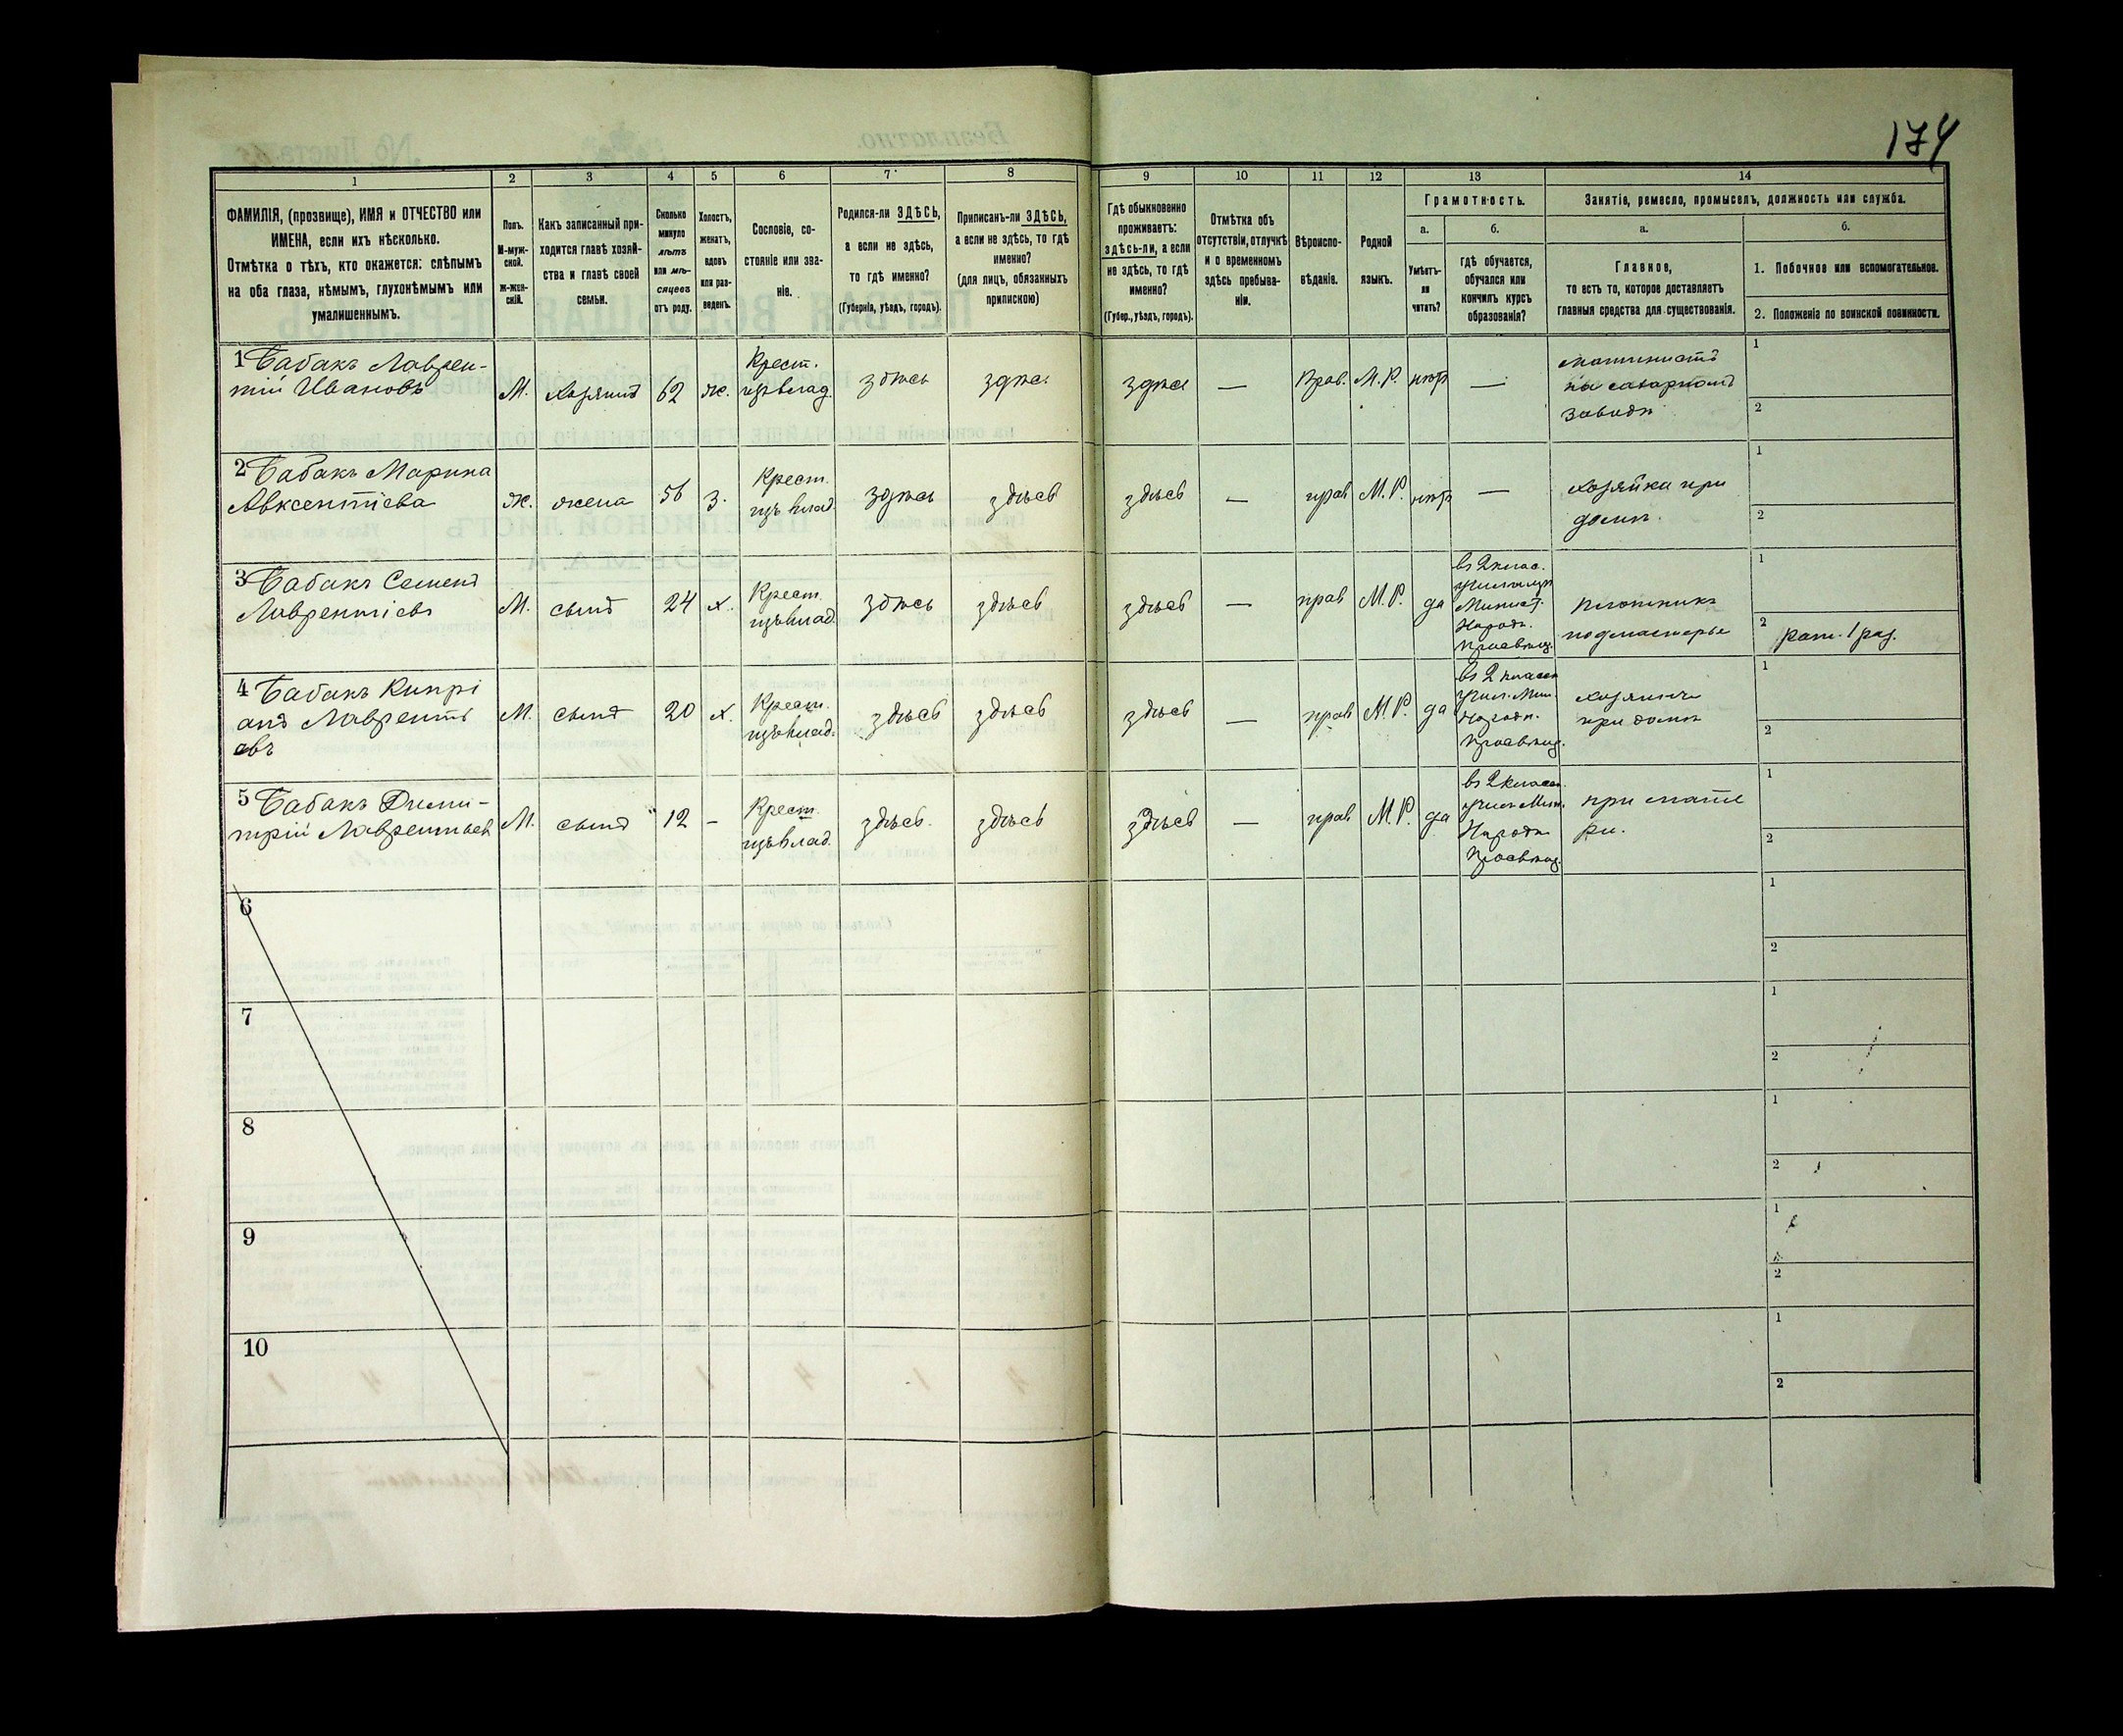 174
1 2 3 4 5 6 7 8 9 10 11 12 13 14
ФАМИЛІЯ, (прозвище), ИМЯ и ОТЧЕСТВО или
ИМЕНА, если ихъ нѣсколько.
Отмѣтка о тѣхъ, кто окажется: слѣпымъ
на оба глаза, нѣмымъ, глухонѣмымъ или
умалишеннымъ.
Полъ.
М-муж-
ской.
ж-жен-
скій.
Какъ записанный при-
ходится главѣ хозяй-
ства и главѣ своей
семьи.
Сколько
минуло
лѣтъ
или мѣ-
сяцевъ
отъ роду.
Холостъ,
женатъ,
вдовъ
или раз-
веденъ.
Сословіе, со-
стояніе или зва-
ніе.
Родился-ли ЗДѢСЬ,
а если не здѣсь,
то гдѣ именно?
(Губернія, уѣздъ, городъ).
Приписанъ-ли ЗДѢСЬ,
а если не здѣсь, то гдѣ
именно?
(для лицъ, обязанныхъ
припискою)
Гдѣ обыкновенно
проживаетъ:
здѣсь-ли, а если
не здѣсь, то гдѣ
именно?
(Губер., уѣздъ, городъ).
Отмѣтка объ
отсутствіи, отлучкѣ
и о временномъ
здѣсь пребыва-
ніи.
Вѣроиспо-
вѣданіе.
Родной
языкъ.
Грамотность.
а.
Умѣетъ-
ли
читать?
б.
гдѣ обучается,
обучался или
кончилъ курсъ
образованія?
Занятіе, ремесло, промыселъ, должность или служба.
а.
Главное,
то есть то, которое доставляетъ
главныя средства для существованія.
б.
1. Побочное или вспомогательное.
2. Положеніе по воинской повинности.
1 Бабакъ Лаврен-
тій Ивановъ
М.
хозяинъ
62
ж.
Крест.
изъ влад.
здѣсь
здѣсь
здѣсь
—
Прав.
М. Р.
нѣтъ
—
машинистъ
на сахарномъ
заводѣ
1
2
2 Бабакъ Марина
Авксентіева
ж.
жена
56
з.
Крест.
изъ влад.
здѣсь
здѣсь
здѣсь
—
прав
М. Р.
нѣтъ
—
хозяйка при
домѣ.
1
2
3 Бабакъ Семенъ
Лаврентіевъ
М.
сынъ
24
х.
Крест.
изъ влад.
здѣсь
здѣсь
здѣсь
—
прав
М. Р.
да
въ 2 клас.
училищѣ
Минист.
Народн.
Просвѣщ.
плотникъ
подмастерье
1
2 рат. 1 раз.
4 Бабакъ Кипрі
анъ Лаврентъ
евъ
М.
сынъ
20
х.
Крест.
изъ влад.
здѣсь
здѣсь
здѣсь
—
прав
М. Р.
да
въ 2 классн
учил. Мин.
Народн.
Просвѣщ.
при домѣ
1
2
5 Бабакъ Дими-
трій Лаврентьев
М.
сынъ
12
-
Крест.
изъ влад.
здѣсь.
здѣсь
здѣсь
—
прав
М. Р.
да
въ 2 классн.
учил. Мин.
Народн.
Просвѣщ.
при мате
ри.
1
2
6
1
2
7
1
2
8
1
2
9
1
2
10
1
2